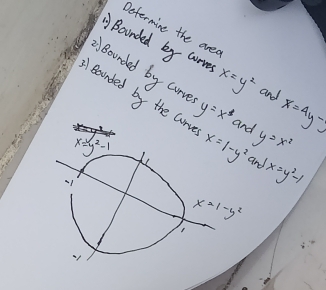 Determine the area
1.) Bounded by curves x = y² and x = 4y -
2.) Bounded by curves y = x and y = x²
3.) Bounded by the curves x = 1-y² and x = y²-1
x = y²-1
1
-1
x = 1-y²
1
-1